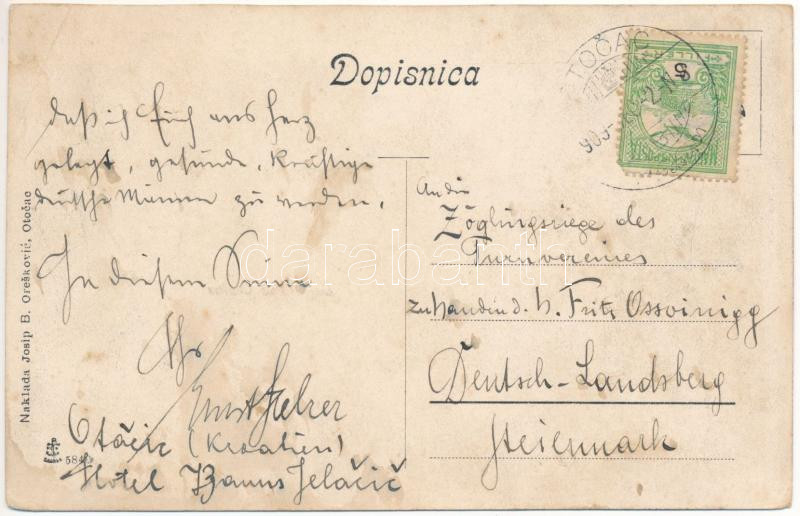 Dopisnica
OTOČAC
daß ich Euch ans Herz
gelegt, gesunde, kräftige
deutsche Männer zu werden.
In diesem Sinne
Ihr
Ernst
Otočic (Kroatien)
Hotel Banus Jelačič
An die
Zöglingsriege des
Turnvereines
zu Handen d. H. Fritz Ossoinigg
Deutsch-Landsberg
Steiermark
Naklada Josip B. Orešković, Otočac
darabanth.com